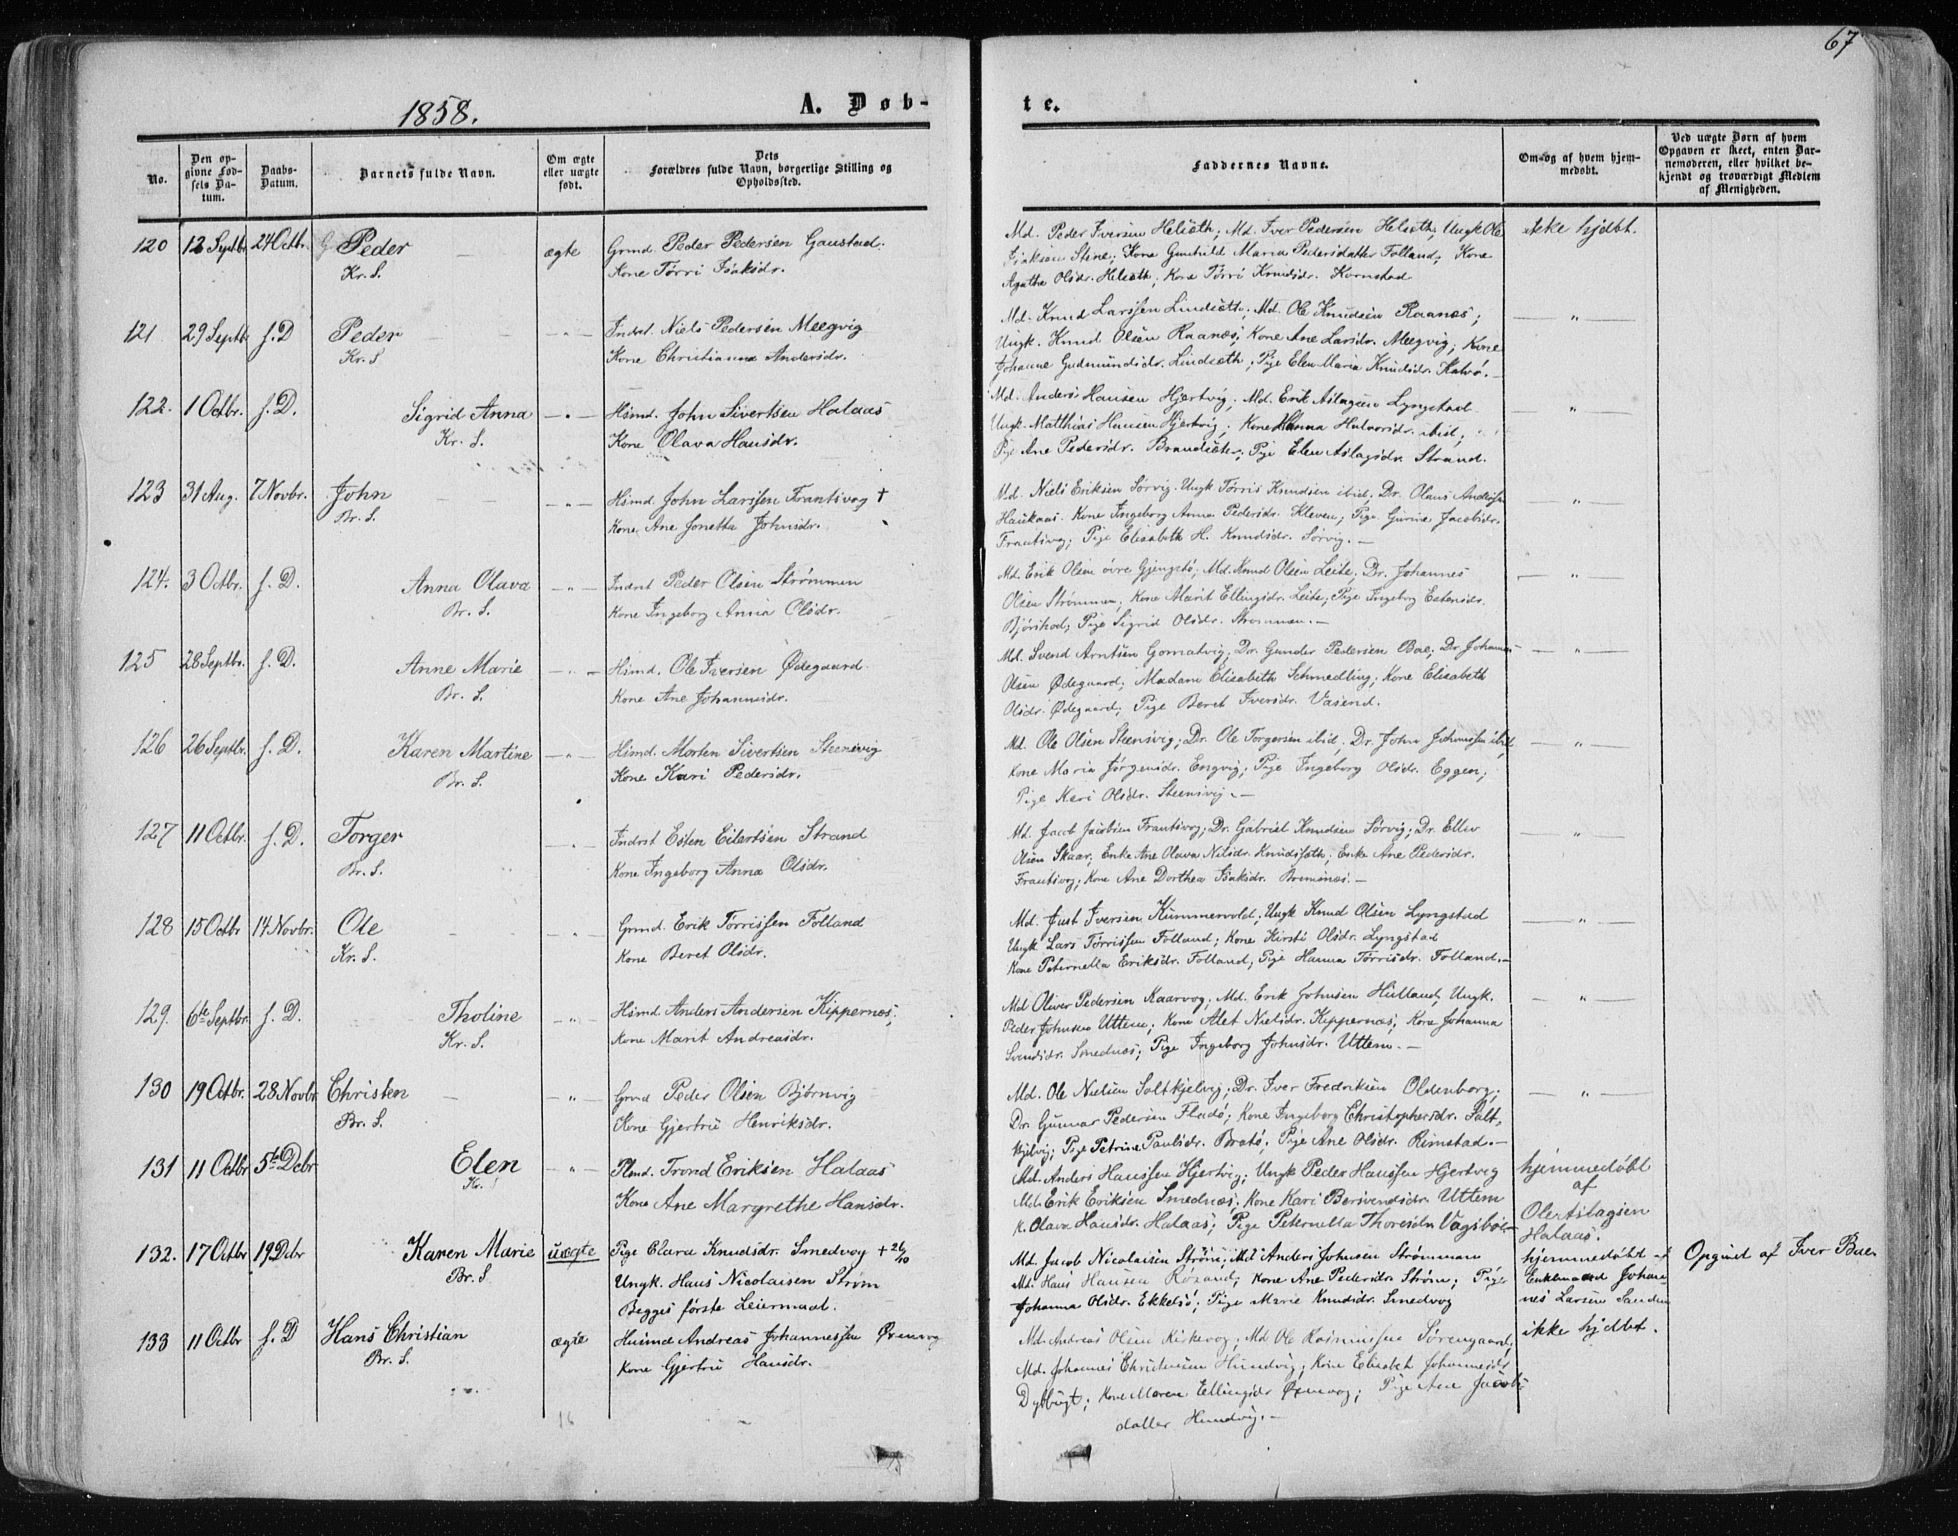 67
1858.
A. Døb-
te.
No.
Den op-
givne Fød-
sels Da-
tum.
Daabs-
Datum.
Barnets fulde Navn.
Om ægte
eller uægte
født.
Dets
Forældres fulde Navn, borgerlige Stilling og
Opholdssted.
Faddernes Navne.
Om- og af hvem hjem-
medøbt.
Ved uægte Børn af hvem
Opgaven er skeet, enten Bar-
nemoderen, eller hvilket be-
kjendt og troværdigt Medlem
af Menigheden.
120 12 Septbr. 24 Octbr. Peder ægte Grmd. Peder Pedersen Gaustad.
Kr. S. Kone Tørri Isaksdr.
Md. Peder Iversen Helseth; Md. Iver Pedersen Helseth; Ungk Ole
Isaksen Stene; Kone Gunhild Maria Pedersdatter Folland; Kone
Agathe Olsdr. Helseth; Kone Tørri Knudsdr. Kornstad
ikke hjdbt.
121 29 Septb. s. D Peder — " — Indst. Niels Pedersen Meegvig
Kr. S Kone Christianna Andersdr.
Md. Knud Larssen Lindsæth; Md. Ole Knudsen Raanæs;
Ungk. Knud Olsen Raanæs; Kone Ane Larsdr. Meegvig; Kone
Johanne Gudmundsdr. Lindsæth; Pige Elen Maria Knudsdr. Kalvø. —
— " —
122. 1 Octbr. s. D. Sigrid Anna — " — Hsmd. John Sivertsen Halaas
Kr. S. Kone Olava Hansdr.
Md. Anders Hansen Hjertvig; Md. Erik Aslagsen Lyngstad
Ungk. Matthias Hansen Hjertvig; Kone Hanna Halvorsdr. ibid;
Pige Ane Pedersdr. Brandsæter; Pige Elen Aslagsdr. Strand.
— " —
123 31 Aug. 7 Novbr. John — " — Hsmd. John Larssen Frantsvog †
Br. S. Kone Ane Jonetta Johnsdr.
Md. Niels Eriksen Sørvig. Ungk Tørris Knudsen ibid; Dr. Olaus Andersen
Haukaas. Kone Ingeborg Anna Pedersdr. Kleven; Pige Gurine Jacobsdr.
Frantsvog; Pige Elisabeth H. Knudsdr. Sørvig. —
— " —
124. 3 Octbr. s. D. Anna Olava — " — Indrst Peder Olsen Strømmen
Br. S. Kone Ingeborg Anna Olsdr.
Md. Erik Olsen øvre Gjengstø; Md. Knud Olsen Leite; Dr. Johannes
Olsen Strømmen; Kone Marit Ellingsdr. Leite; Pige Ingeborg Estensdr.
Bjørshod; Pige Sigrid Olsdr. Strømmen. —
— " —
125 28 Septbr. s. D. Anne Marie — " — Hsmd. Ole Iversen Ødegaard.
Br. S. Kone Ane Johannsdr.
Md. Svend Arntsen Gomalvig; Dr. Gunder Pedersen Bae; Dr. Johannes
Olsen Ødegaard; Madam Elisabeth Schmedling; Kone Elisabeth
Olsdr. Ødegaard; Pige Beret Iversdr. Vasend.
— " —
126 26 Septbr. s. D. Karen Martine — " — Hsmd. Morten Sivertsen Steensvig
Br. S. Kone Kari Pedersdr.
Md. Ole Olsen Steensvig; Dr. Ole Torgersen ibid; Dr. John Johanssen ibid
Kone Maria Jørgensdr. Engvig; Pige Ingeborg Olsdr. Eggen;
Pige Kari Olsdr. Steensvig. —
— " —
127 11 Octbr. s. D. Torger — " — Indrst Esten Eilertsen Strand
Br. S. Kone Ingeborg Anna Olsdr.
Md. Jacob Jacobsen Frantsvog; Dr. Gabriel Knudsen Sørvig; Dr. Ellev
Olsen Skaar; Enke Ane Olava Nilsdr. Knudsæth; Enke Ane Pedersdr.
Frantsvog; Kone Ane Dorthea Isaksdr. Bremsnæs. —
— " —
128 15 Octbr 14 Novbr. Ole — " — Grmd. Erik Tørrissen Folland
Kr. S. Kone Beret Olsdr.
Md. Just Iversen Kummervold; Ungk Knud Olsen Lyngstad
Ungk Lars Tørrissen Folland; Kone Kirsti Olsdr. Lyngstad
Kone Peternella Eriksdr. Folland; Pige Hanna Tørrisdr. Folland. —
— " —
129. 6te Septbr. s. D. Tholine — " — Hsmd Anders Andersen Kippernæs;
Kr. S. Kone Marit Andreasdr.
Md Oliver Pedersen Kaarvog; Md. Erik Johnsen Hulland; Ungk.
Peder Johnsen Uttem; Kone Alet Nielsdr. Kippernæs; Kone Johanna
Svendsdr. Smednæs; Pige Ingeborg Johnsdr. Uttem. —
— " —
130 19 Octbr. 28 Novbr Christen — " — Grmd Peder Olsen Bjørnvig
Br. S. Kone Gjertru Henriksdr.
Md. Ole Nielsen Saltkjelvig; Dr. Iver Fredriksen Oldenborg;
Dr. Gunnar Pedersen Fladø; Kone Ingeborg Christophersdr. Salt-
kjelvig; Pige Petrine Paulsdr. Bratø; Pige Ane Olsdr. Rimstad. —
— " —
131 11 Octbr 5te Decbr Elen — " — Plmd. Trond Eriksen Halaas
Kr. S Kone Ane Margrethe Hansdr.
Md. Anders Hanssen Hjertvig; Ungk Peder Hanssen Hjertvig
Md. Erik Eriksen Smednæs; Kone Kari Bersvendsdr. Uttem
K. Olava Hansdr. Halaas; Pige Peternella Thoresdr. Vagsbøe
hjemmedøbt
af
Ole Aslagsen
Halaas.
132. 17 Octbr 19 Dcbr Karen Marie uægte Pige Clara Knudsdr. Smedvog † 26/10
Br. S Ungk. Hans Nicolaisen Strøm
Begges første Leiermaal.
Md. Jacob Nicolaisen Strøm; Md Anders Johnsen Strømmen
Md. Hans Hansen Røsand; Kone Ane Pedersdr Strøm; Pige
Johanna Olsdr. Ekkelsø; Pige Marie Knudsdr. Smedvog
hjemmedøbt af
Enkemand Johan-
nes Larsen Sanden
Opgivet af Iver Bae
133 11 Octbr s. D Hans Christian ægte Huusmd Andreas Johannessen Øxenvog
Br. S. Kone Gjertru Hansdr.
Md. Andreas Olsen Kirkevog; Md Ole Rasmussen Sørengaard;
Md. Johannes Christensen Hundvig; Kone Elisabet Johannesdr
Dybbugt; Kone Maren Ellingsdr Øxenvog; Pige Ane Jacobs
datter Hundvig. —
ikke hjdbt.
16